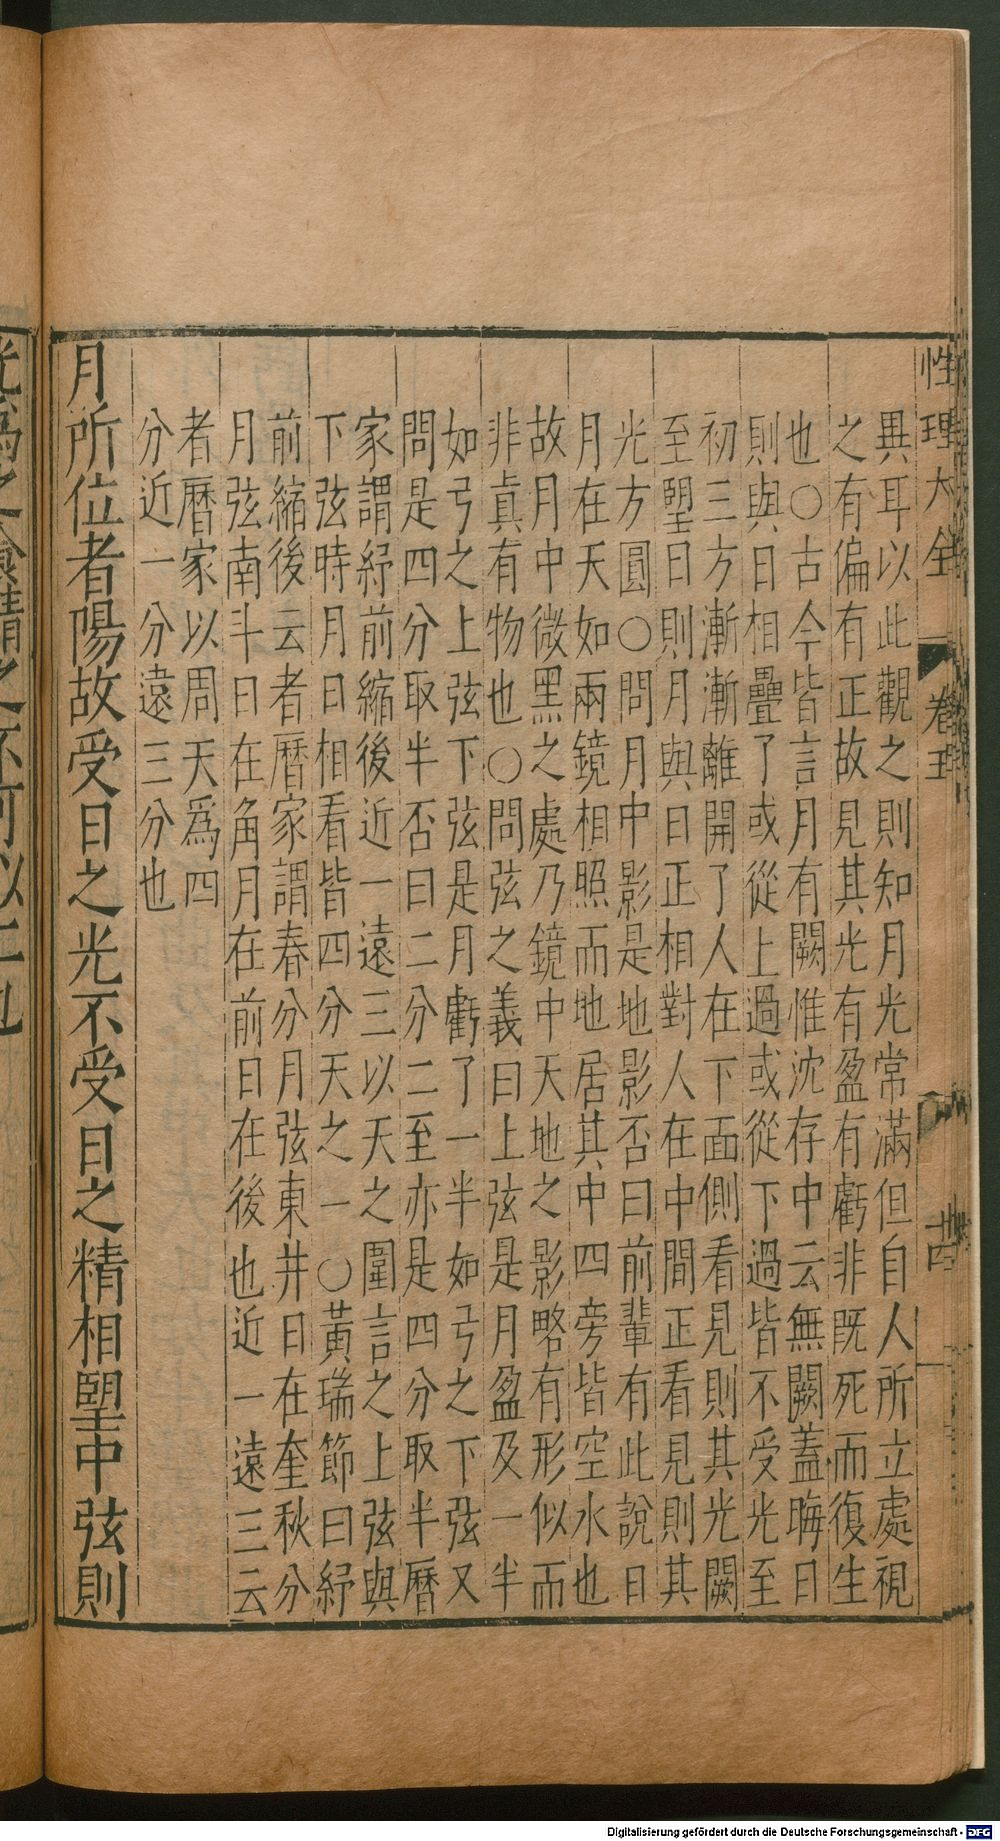 性理大全 卷五 四
異耳以此觀之則知月光常滿但自人所立處視
之有偏有正故見其光有盈有虧非既死而復生
也○古今皆言月有闕惟沈存中云無闕蓋晦日
則與日相疊了或從上過或從下過皆不受光至
初三方漸漸離開了人在下面側看見則其光闕
至朢日則月與日正相對人在中間正看見則其
光方圓○問月中影是地影否曰前輩有此說日
月在天如兩鏡相照而地居其中四旁皆空水也
故月中微黑之處乃鏡中天地之影略有形似而
非真有物也○問弦之義曰上弦是月盈及一半
如弓之上弦下弦是月虧了一半如弓之下弦又
問是四分取半否曰二分二至亦是四分取半曆
家謂紓前縮後近一遠三以天之圍言之上弦與
下弦時月日相看皆四分天之一○黃瑞節曰紓
前縮後云者曆家謂春分月弦東井日在奎秋分
月弦南斗日在角月在前日在後也近一遠三云
者曆家以周天爲四
分近一分遠三分也
月所位者陽故受日之光不受日之精相朢中弦則
光爲之食精之不可以二也
Digitalisierung gefördert durch die Deutsche Forschungsgemeinschaft - DFG